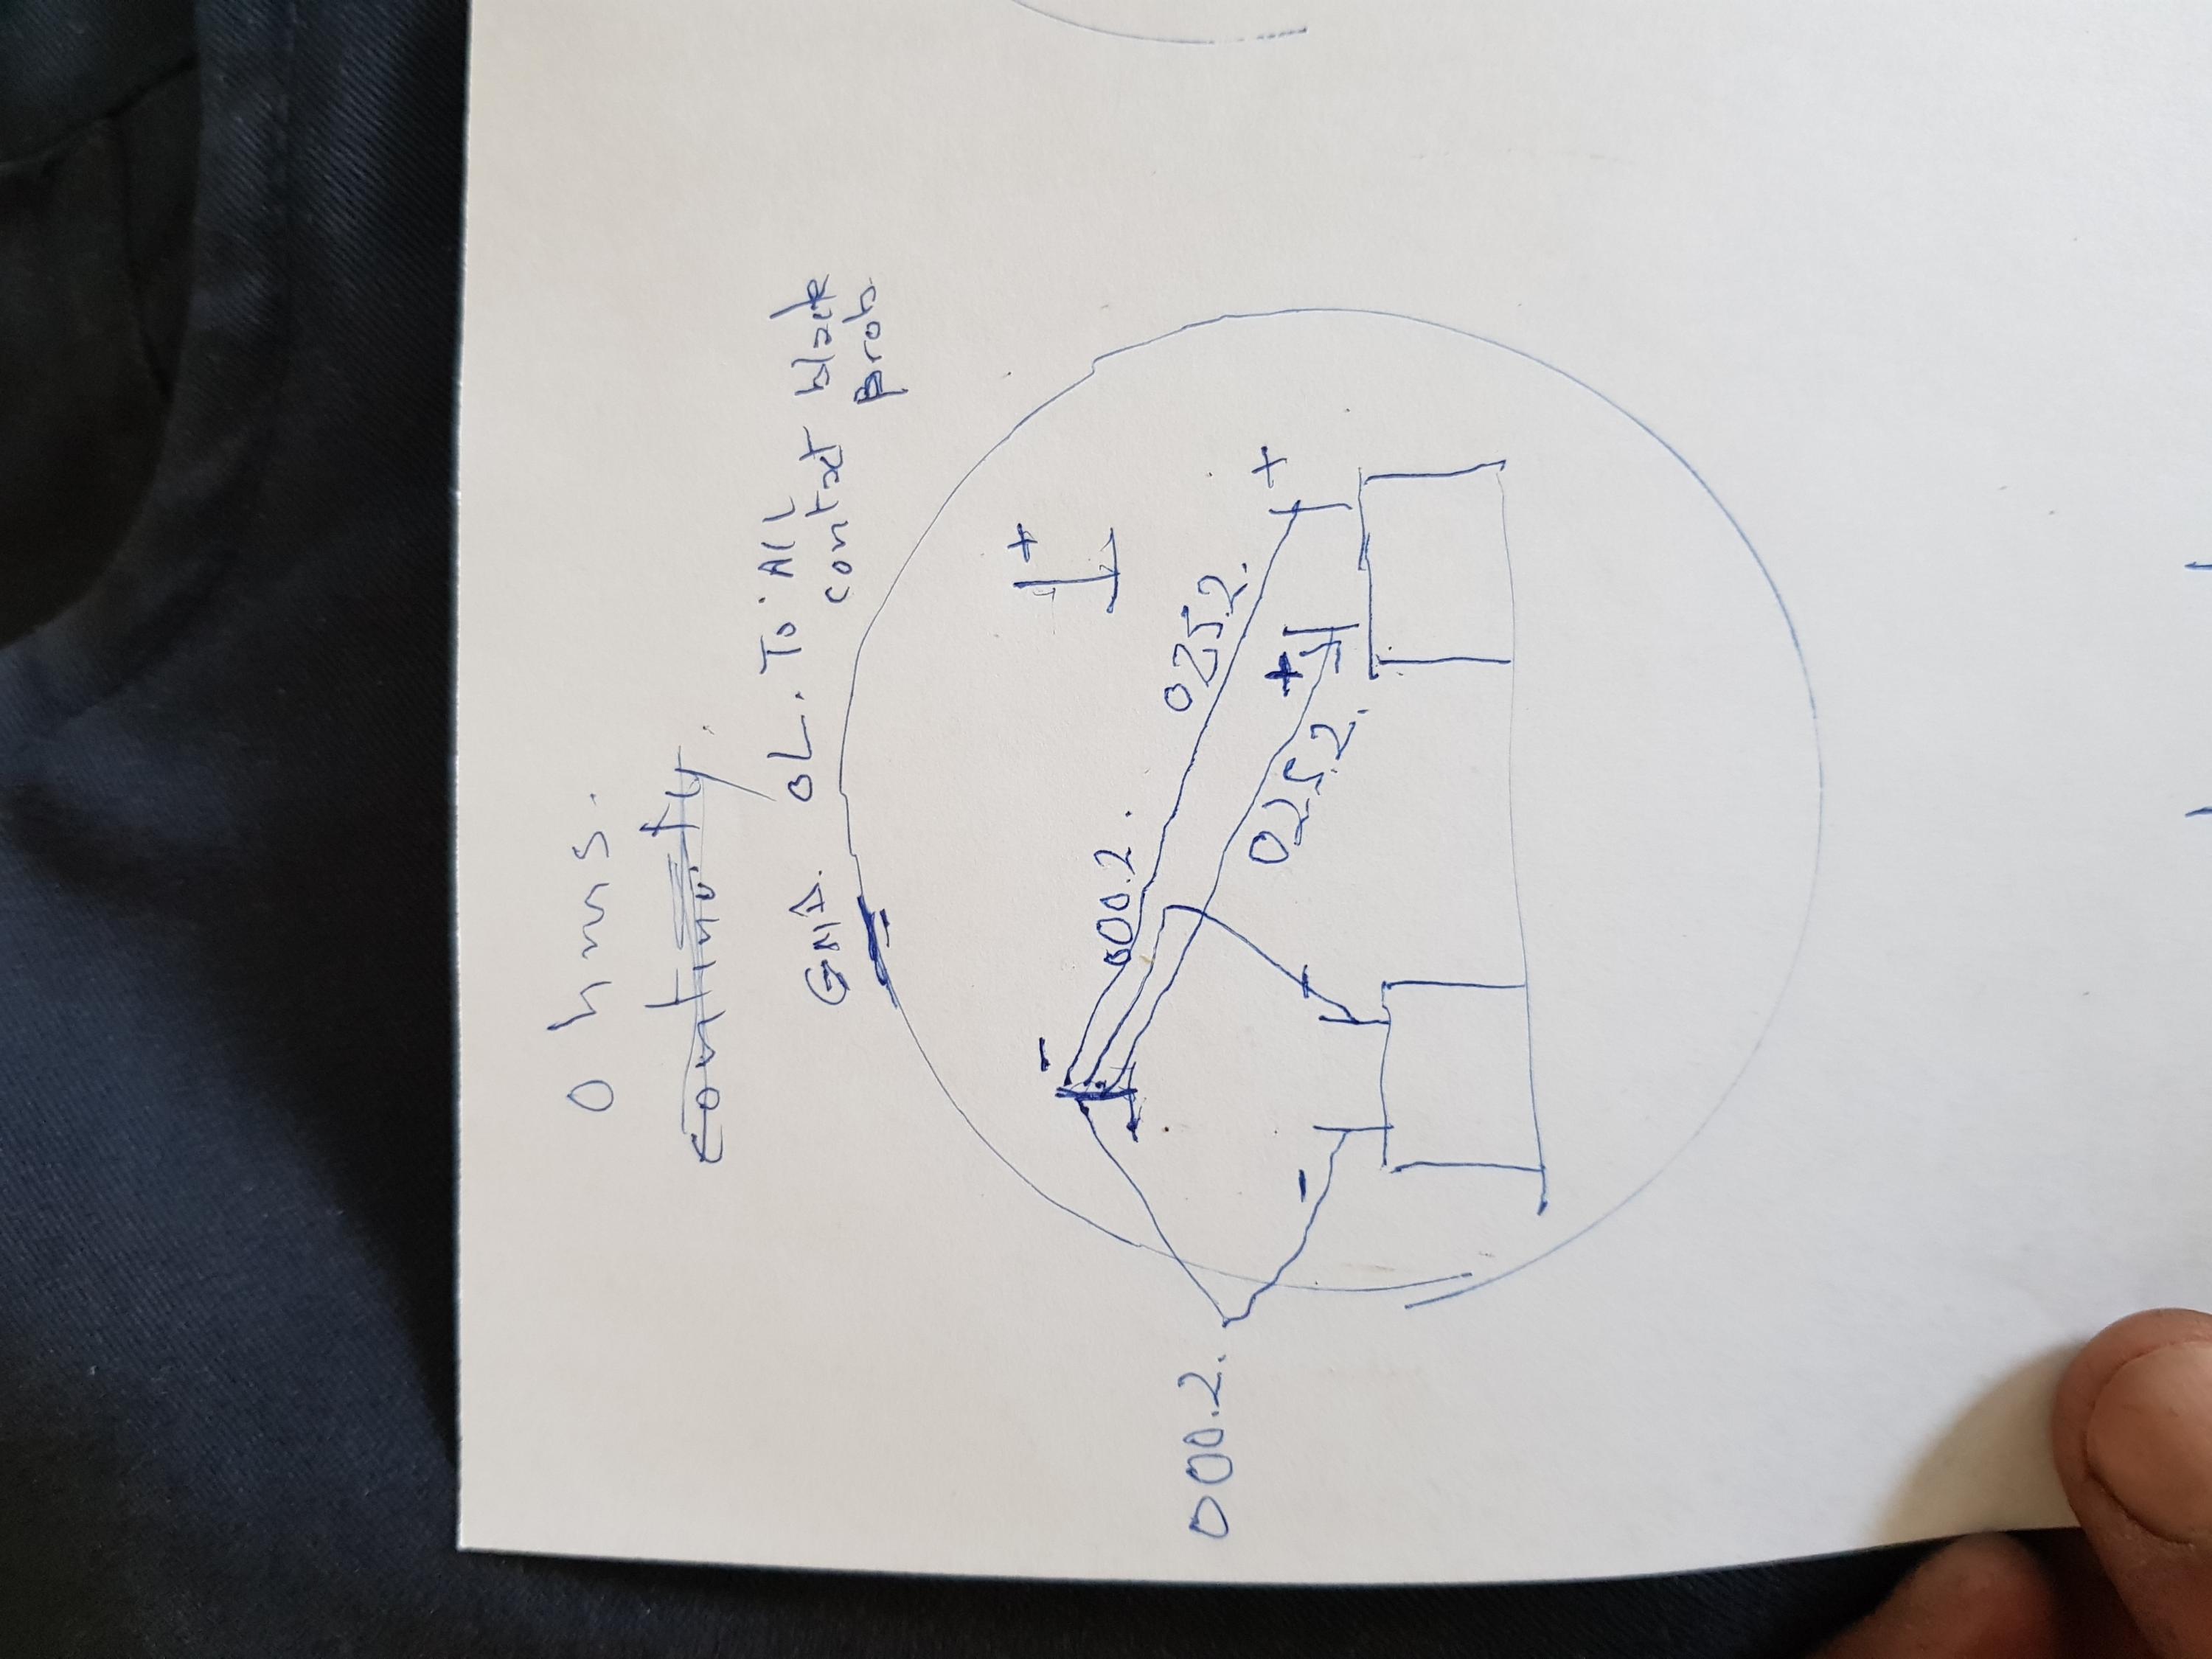 Ohms.
continuity.
GND. OL. To All
contact black
prob
+
-
000.2.
025.2.
+
+
025.2.
-
-
000.2.